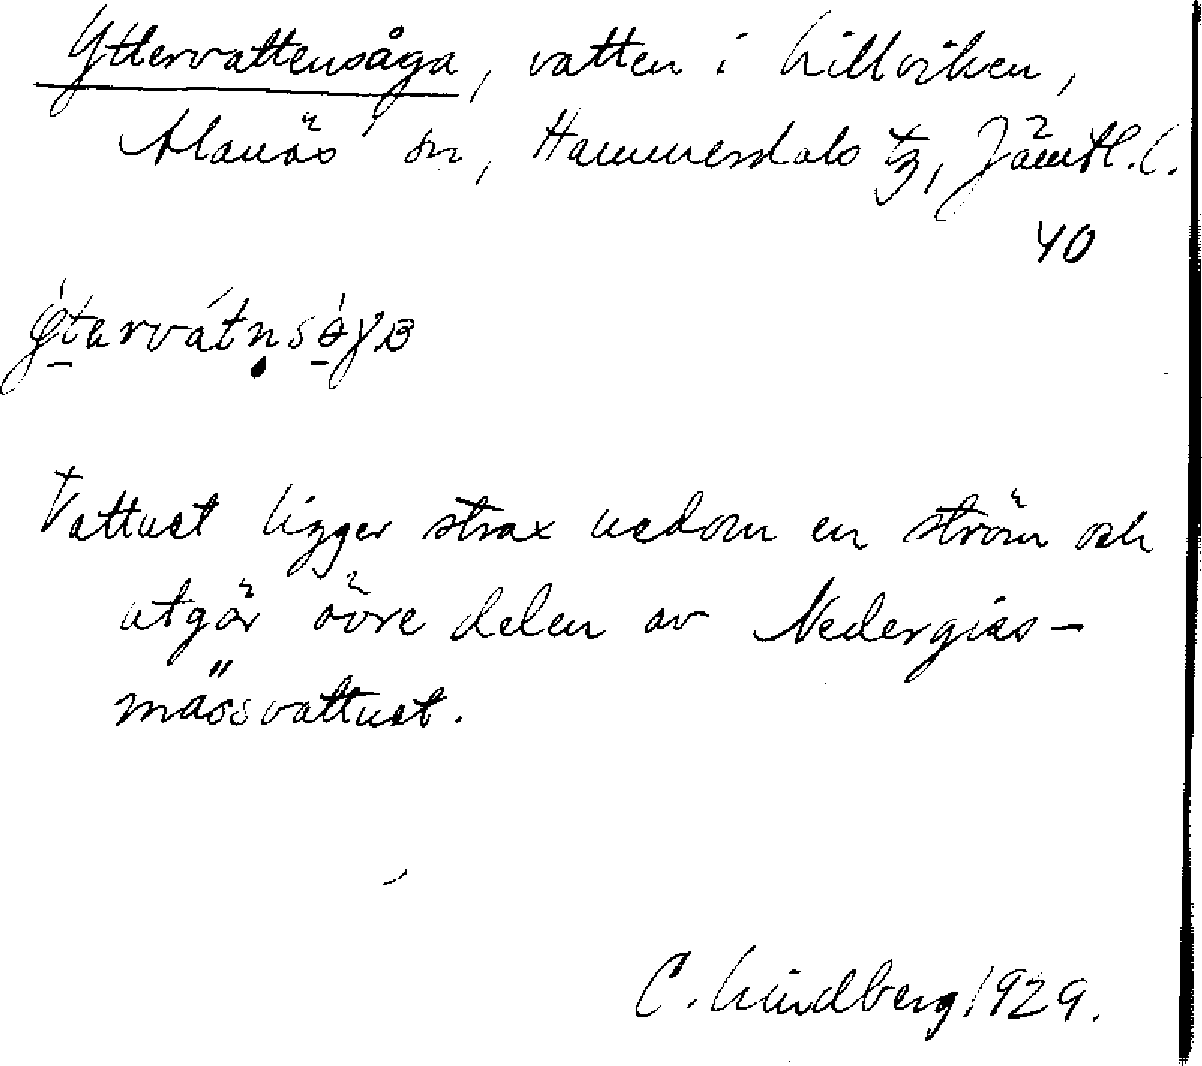 Yttervattensåga, vatten i Lillviken,
Alanäs sn, Hammerdals tg, Jämtl. l.
40
ýtərvátn̥sǿγʙ
Vattnet ligger strax nedom en ström och
utgör övre delen av Nedergias-
mässvattnet.
C. Lindberg 1929.